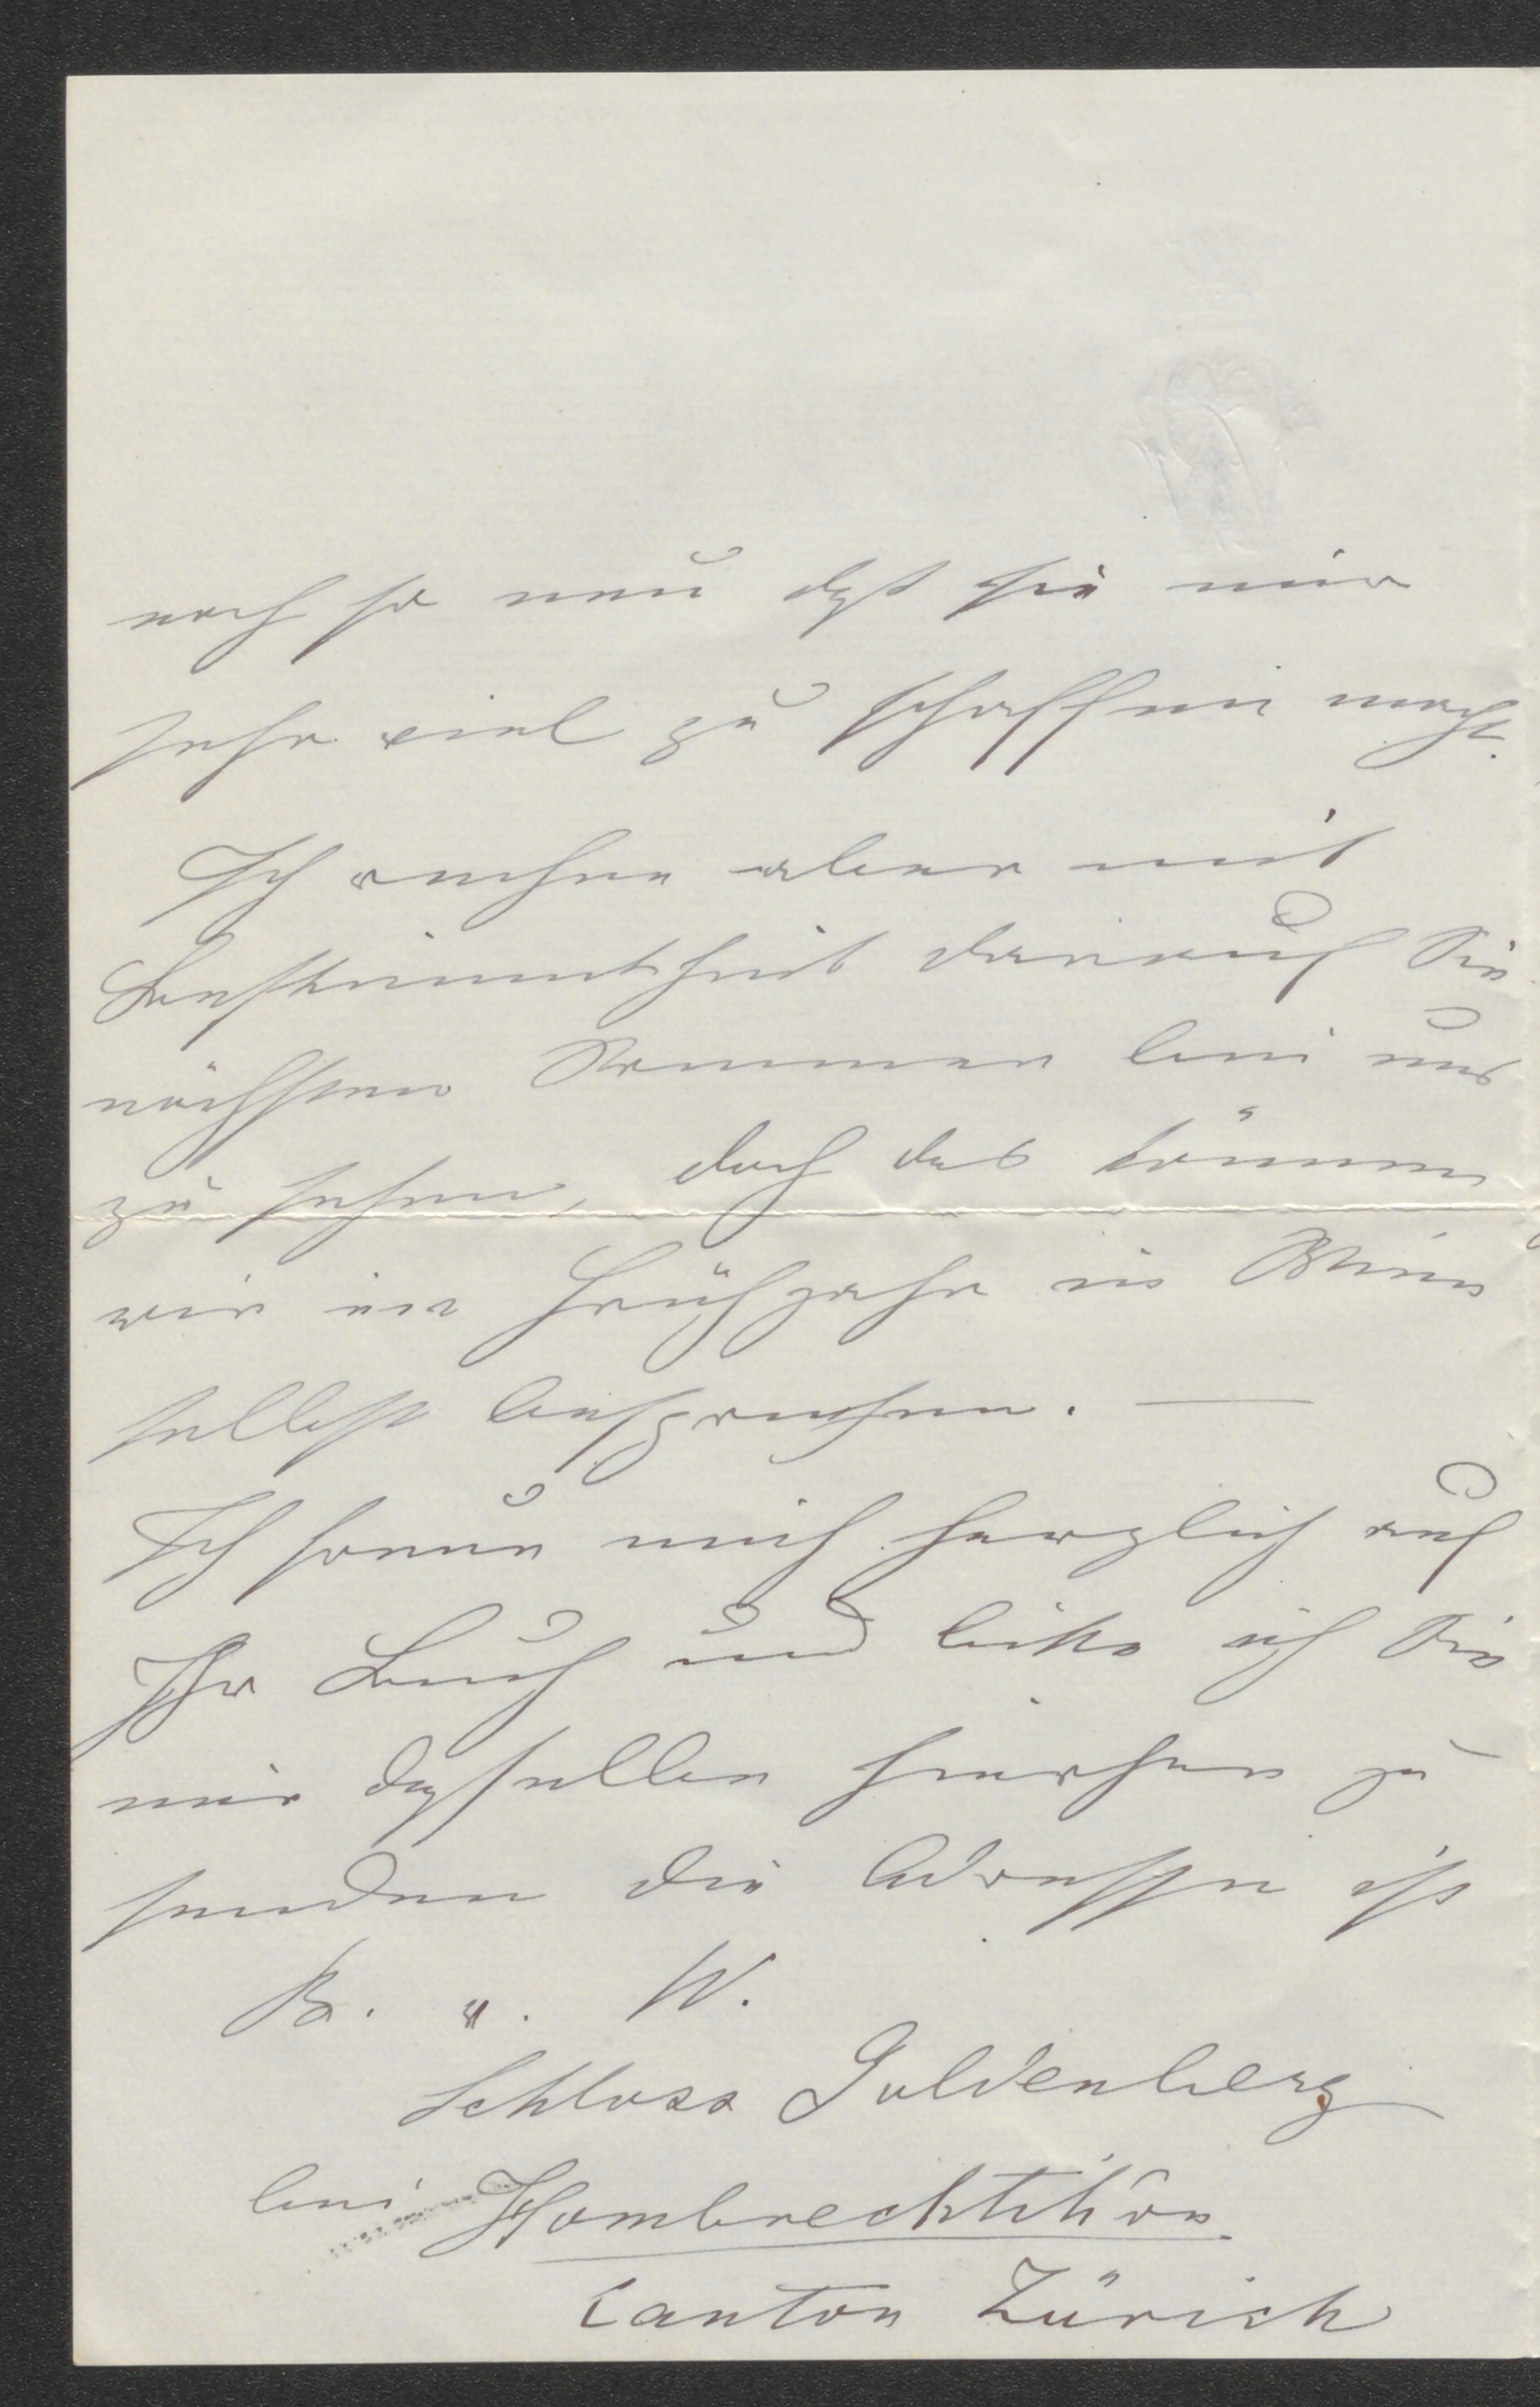 noch so neu daß sie mir
sehr viel zu schaffen macht.
Ich rechne aber mit
Bestimmtheit darauf Sie
nächsten Sommer bei uns
zu sehen, doch das können
wir im Frühjahr in Wien
selbst besprechen. —
Ich freue mich herzlich auf
Ihr Buch und bitte ich Sie
mir dasselbe hierher zu
senden die Adresse ist
B. v. W.
Schloss Guldenberg
bei Hombrechtikon
Canton Zürich